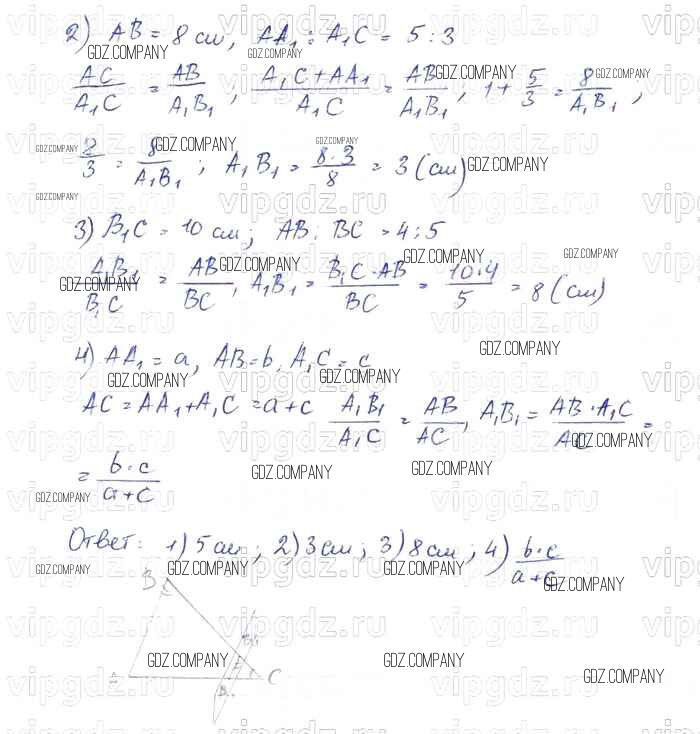 2) AB = 8 см, AA₁ : A₁C = 5 : 3
AC/A₁C = AB/A₁B₁ ; (A₁C + AA₁)/A₁C = AB/A₁B₁ ; 1 + 5/3 = 8/A₁B₁ ,
8/3 = 8/A₁B₁ ; A₁B₁ = 8·3/8 = 3 (см)
3) B₁C = 10 см; AB : BC = 4 : 5
A₁B₁/B₁C = AB/BC , A₁B₁ = B₁C·AB/BC = 10·4/5 = 8 (см)
4) AA₁ = a, AB = b, A₁C = c
AC = AA₁ + A₁C = a + c A₁B₁/A₁C = AB/AC , A₁B₁ = AB·A₁C/AC =
= b·c/(a+c)
Ответ: 1) 5 см ; 2) 3 см ; 3) 8 см ; 4) b·c/(a+c)
B
A C
GDZ.COMPANY
vipgdz.ru